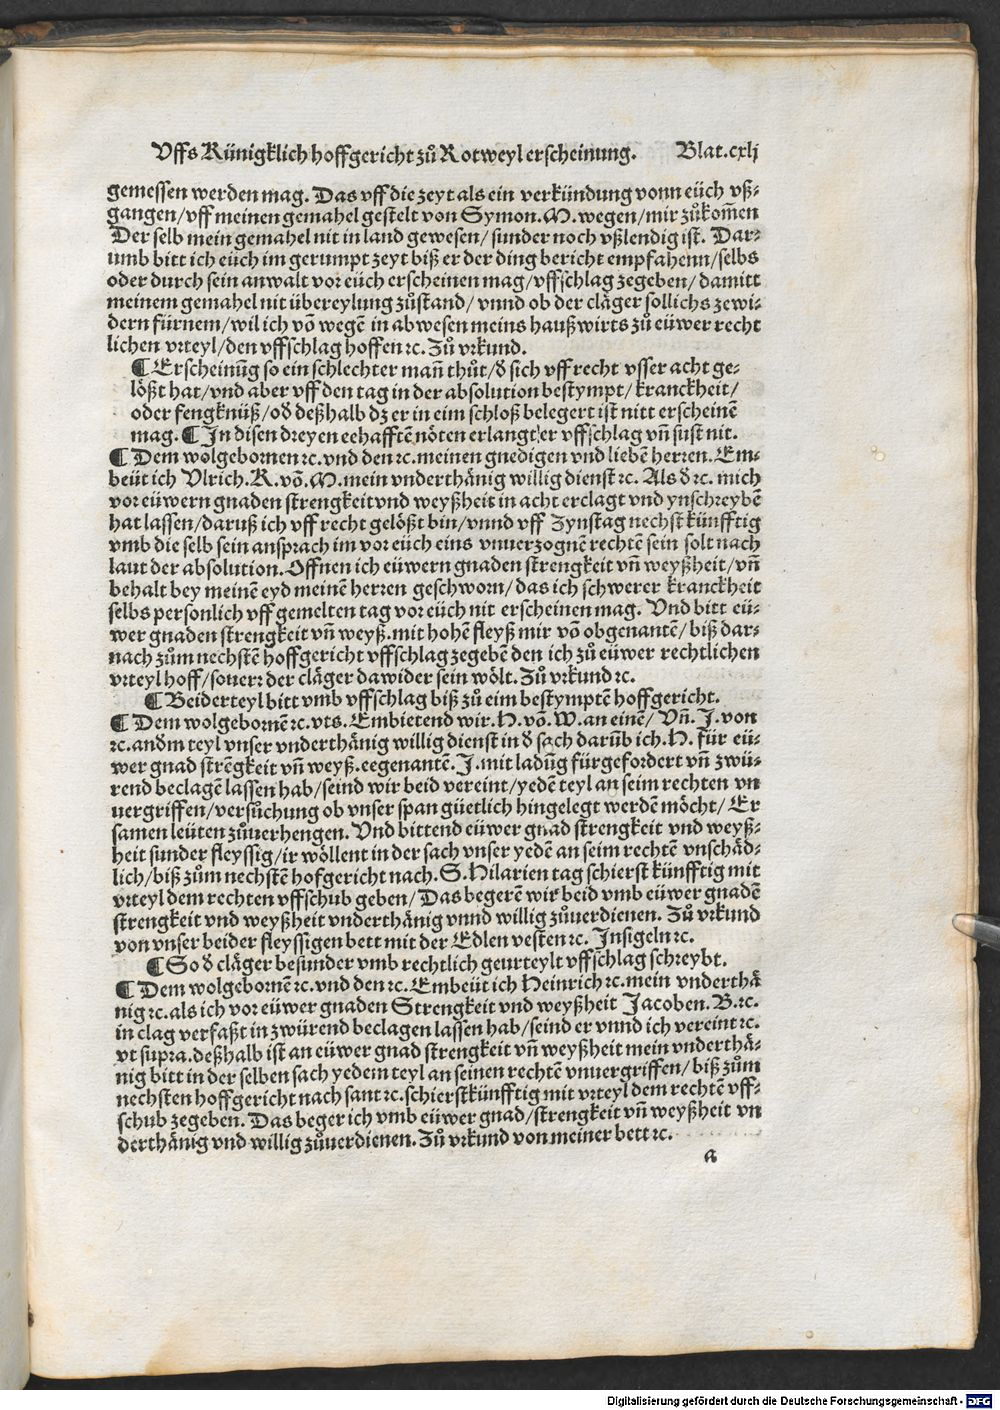 Uffs Künigklich hoffgericht zů Rotweyl erscheinung. Blat.cxlj
gemessen werden mag. Das vff die zeyt als ein verkündung vonn eüch vß-
gangen/vff meinen gemahel gestelt von Symon.M.wegen/mir zůkom̃en
Der selb mein gemahel nit in land gewesen/sunder noch vßlendig ist. Dar-
umb bitt ich eüch im gerumpt zeyt biß er der ding bericht empfahenn/selbs
oder durch sein anwalt vor eüch erscheinen mag/vffschlag zegeben/damitt
meinem gemahel nit übereylung zůstand/vnnd ob der cläger sollichs zewi-
dern fürnem/wil ich võ wegẽ in abwesen meins haußwirts zů eüwer recht
lichen vrteyl/den vffschlag hoffen ꝛc. Zů vrkund.
¶ Erscheinũg so ein schlechter man̄ thůt/đ sich vff recht vsser acht ge-
lößt hat/vnd aber vff den tag in der absolution bestympt/kranckheit/
oder fengknüß/ođ deßhalb dz er in eim schloß belegert ist nitt erscheinẽ
mag. ¶ In disen dreyen eehafftẽ nöten erlangt er vffschlag vñ sust nit.
¶ Dem wolgebornen ꝛc. vnd den ꝛc. meinen gnedigen vnd liebẽ herren. Em-
beüt ich Ulrich.R.võ.M.mein vnderthänig willig dienst ꝛc. Als đ ꝛc. mich
vor eüwern gnaden strengkeit vnd weyßheit in acht erclagt vnd ynschreybẽ
hat lassen/daruß ich vff recht gelößt bin/vnnd vff Zynstag nechst künfftig
vmb die selb sein ansprach im vor eüch eins vnuerzognẽ rechtẽ sein solt nach
laut der absolution. Offnen ich eüwern gnaden strengkeit vñ weyßheit/vñ
behalt bey meinẽ eyd meinẽ herren geschworn/das ich schwerer kranckheit
selbs personlich vff gemelten tag vor eüch nit erscheinen mag. Vnd bitt eü-
wer gnaden strengkeit vñ weyß.mit hohẽ fleyß mir võ obgenantẽ/biß dar-
nach zům nechstẽ hoffgericht vffschlag zegebẽ den ich zů eüwer rechtlichen
vrteyl hoff/souerꝛ der cläger dawider sein wölt. Zů vrkund ꝛc.
¶ Beiderteyl bitt vmb vffschlag biß zů eim bestymptẽ hoffgericht.
¶ Dem wolgebornẽ ꝛc. vts. Embietend wir.H.võ.W.an einẽ/Vñ.J.von
ꝛc. andm teyl vnser vnderthänig willig dienst in đ sach darũb ich.H.für eü-
wer gnad strẽgkeit vñ weyß.eegenantẽ.J.mit ladũg fürgefordert vñ zwü-
rend beclagẽ lassen hab/seind wir beid vereint/yedẽ teyl an seim rechten vn
uergriffen/versůchung ob vnser span güetlich hingelegt werdẽ möcht/Er
samen leüten zůuerhengen. Vnd bittend eüwer gnad strengkeit vnd weyß-
heit sunder fleyssig/ir wöllent in der sach vnser yedẽ an seim rechtẽ vnschäd-
lich/biß zům nechstẽ hofgericht nach.S.Hilarien tag schierst künfftig mit
vrteyl dem rechten vffschub geben/Das begerẽ wir beid vmb eüwer gnadẽ
strengkeit vnd weyßheit vnderthänig vnnd willig zůuerdienen. Zů vrkund
von vnser beider fleyssigen bett mit der Edlen vesten ꝛc. Insigeln ꝛc.
¶ So đ cläger besunder vmb rechtlich geurteylt vffschlag schreybt.
¶ Dem wolgebornẽ ꝛc. vnd den ꝛc. Embeüt ich Heinrich ꝛc. mein vnderthä
nig ꝛc. als ich vor eüwer gnaden Strengkeit vnd weyßheit Jacoben.B.ꝛc.
in clag verfaßt in zwürend beclagen lassen hab/seind er vnnd ich vereint ꝛc.
vt supra.deßhalb ist an eüwer gnad strengkeit vñ weyßheit mein vnderthä-
nig bitt in der selben sach yedem teyl an seinen rechtẽ vnuergriffen/biß zům
nechsten hoffgericht nach sant ꝛc. schierstkünfftig mit vrteyl dem rechtẽ vff-
schub zegeben. Das beger ich vmb eüwer gnad/strengkeit vñ weyßheit vn
derthänig vnd willig zůuerdienen. Zů vrkund von meiner bett ꝛc.
a
Digitalisierung gefördert durch die Deutsche Forschungsgemeinschaft - DFG